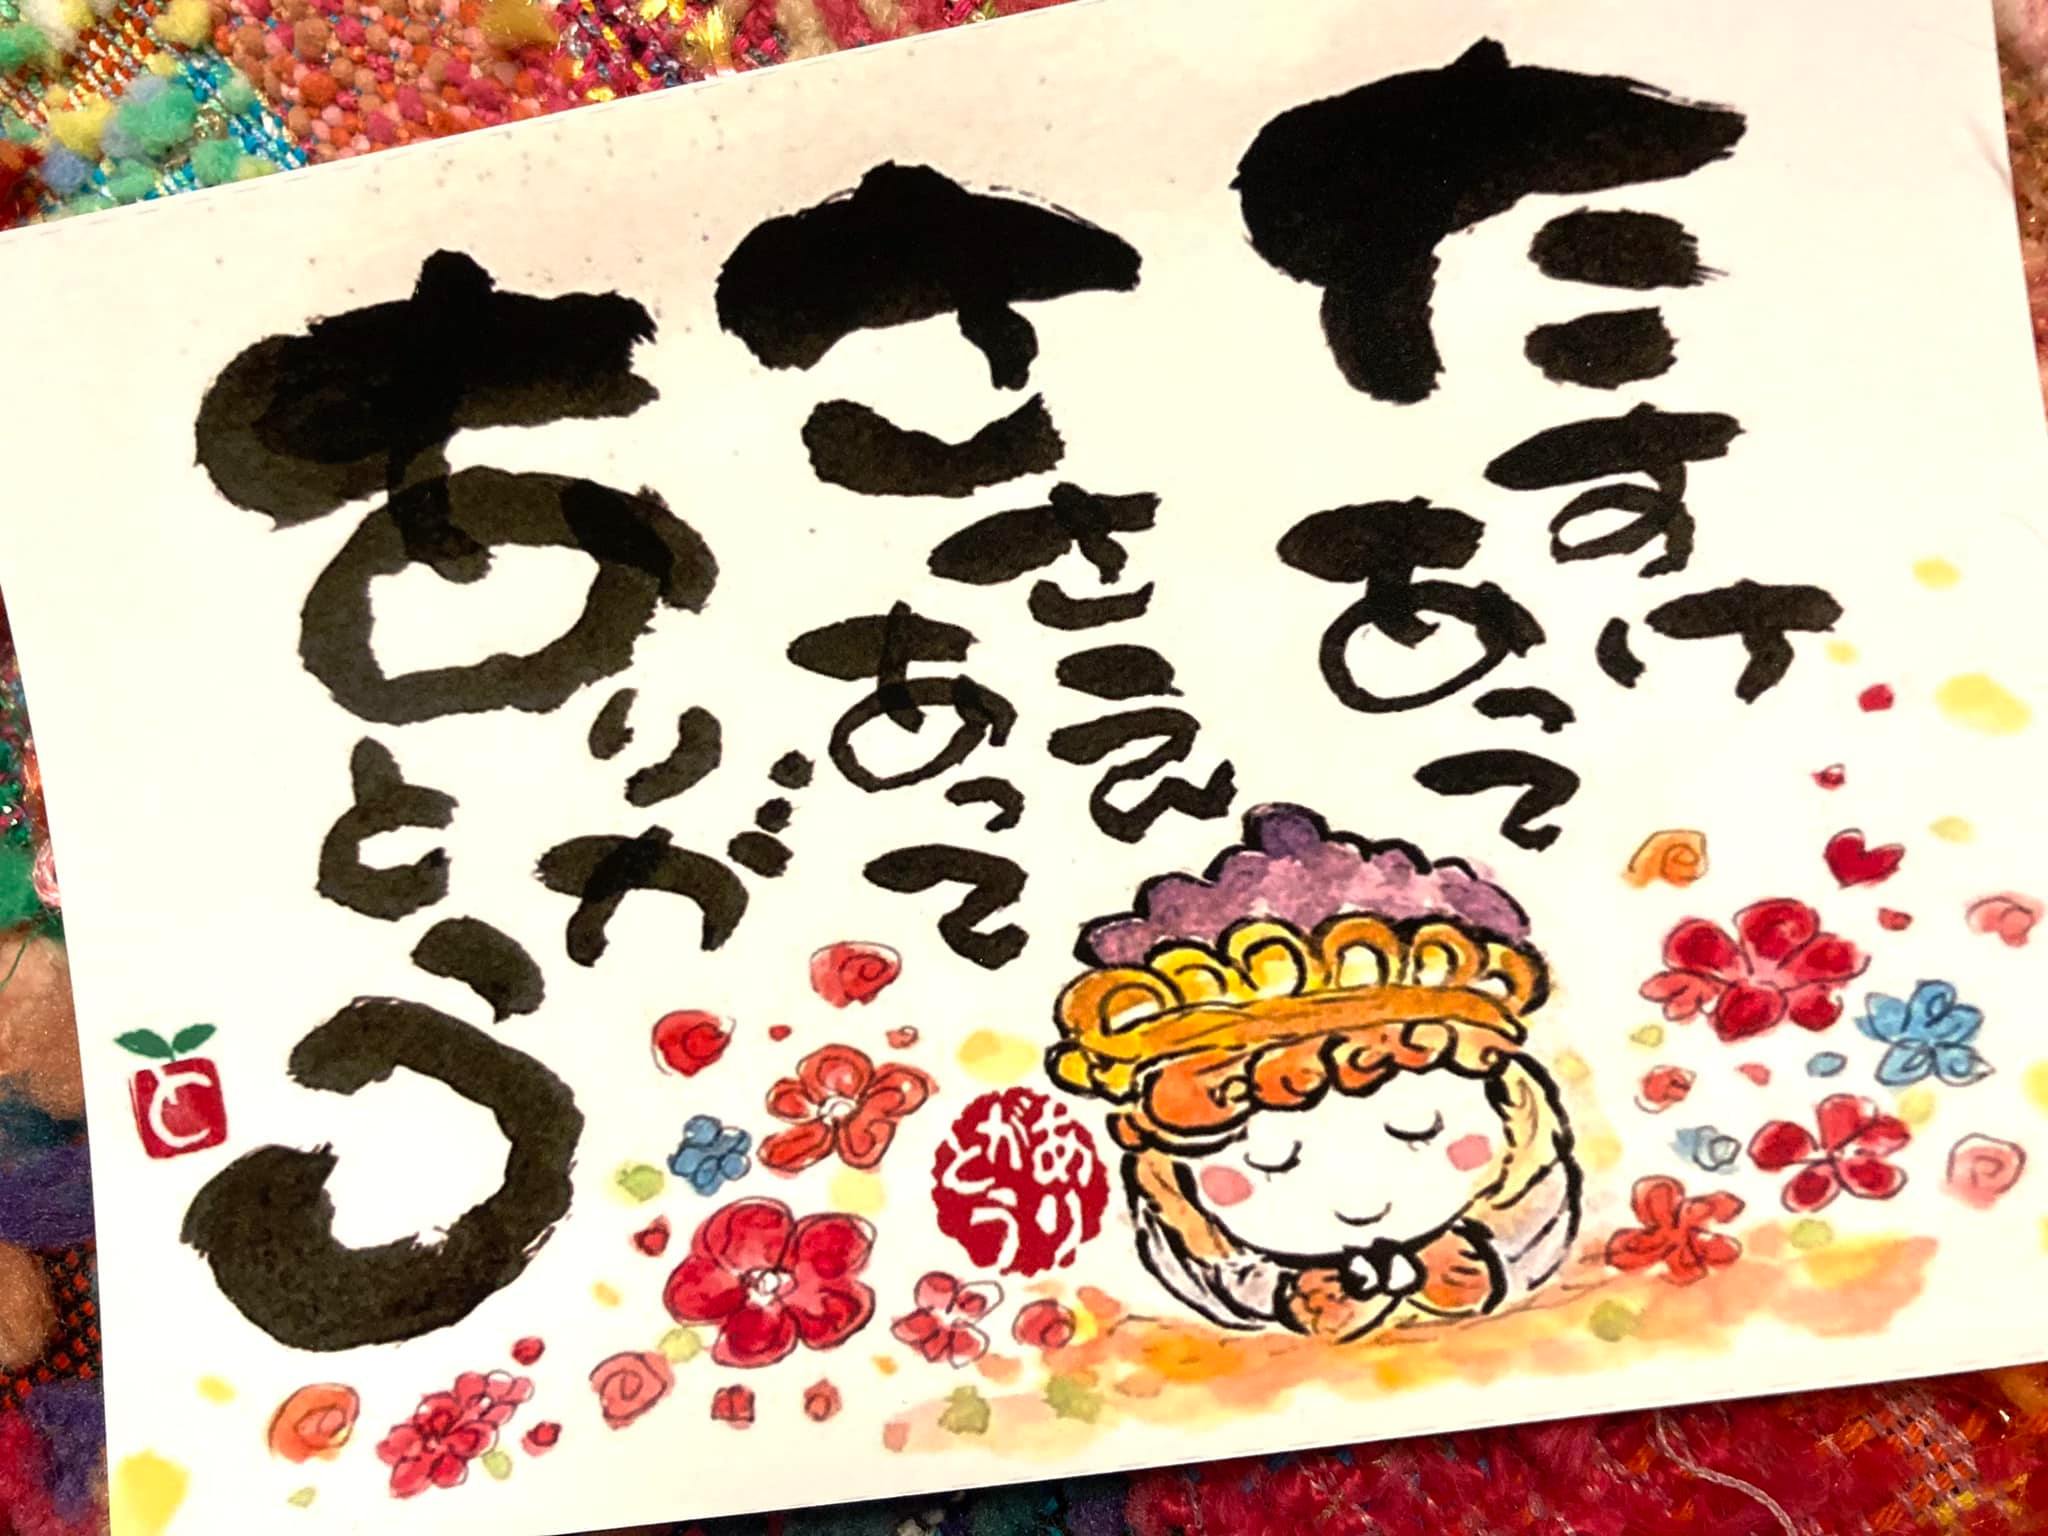 たすけ
あって
ささえ
あって
ありが
とう
ありがとう
と